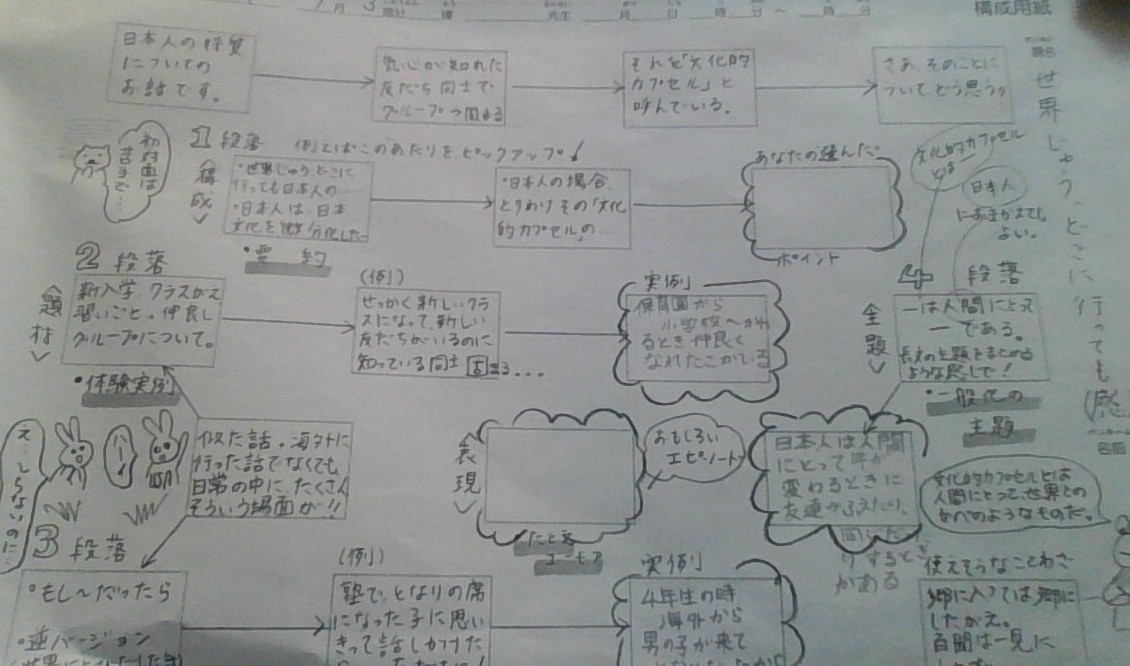 構成用紙
日本人の特質
についての
お話です。
気心が知れた
友だち同士で
グループつ固まる
それを「文化的
カプセル」と
呼んでいる。
さあ、そのことに
ついてどう思うっ
題名
世界じゅうどこに行っても
1段落
例えばこのあたりをピックアップ!
構成
初対面は
苦手で…
・世界じゅうどこに
行っても日本人の……
・日本人は、日本
文化を微分化した…
・要約
・日本人の場合、
とりわけその「文化
的カプセル」の…
あなたの選んだ
ポイント
文化的カプセル
とは
日本人
におきかえても
よい。
2段落
題材
新入学、クラスがえ
習いごと。仲良し
グループについて。
・体験実例
(例)
せっかく新しいクラ
スになって、新しい
友だちがいるのに
知っている同士固まる...
実例
保育園から
小学校へかわ
るとき仲良く
なれたこがいる
4段落
主題
一は人間にとって
一である。
長文の主題をまとめる
ような感じで!
・一般化の
主題
(感
名前
え…しらないのに…
似た話。海外に
行った話でなくても
日常の中に、たくさん
そういう場面が!!
表現
たとえ
ユーモア
おもしろい
エピソート
日本人は人間
にとって
変わるときに
友達がふえたり、
聞いた
りするとき
がある
文化的カプセルとは
人間にとって、世界との
かべのようなものだ。
3段落
・もし〜だったら
・逆バージョン
(例)
塾で、となりの席
になった子に思い
きって話しかけた
実例
4年生の時
海外から
男の子が来て
使えそうなことわざ
郷に入っては郷に
したがえ。
百聞は一見に